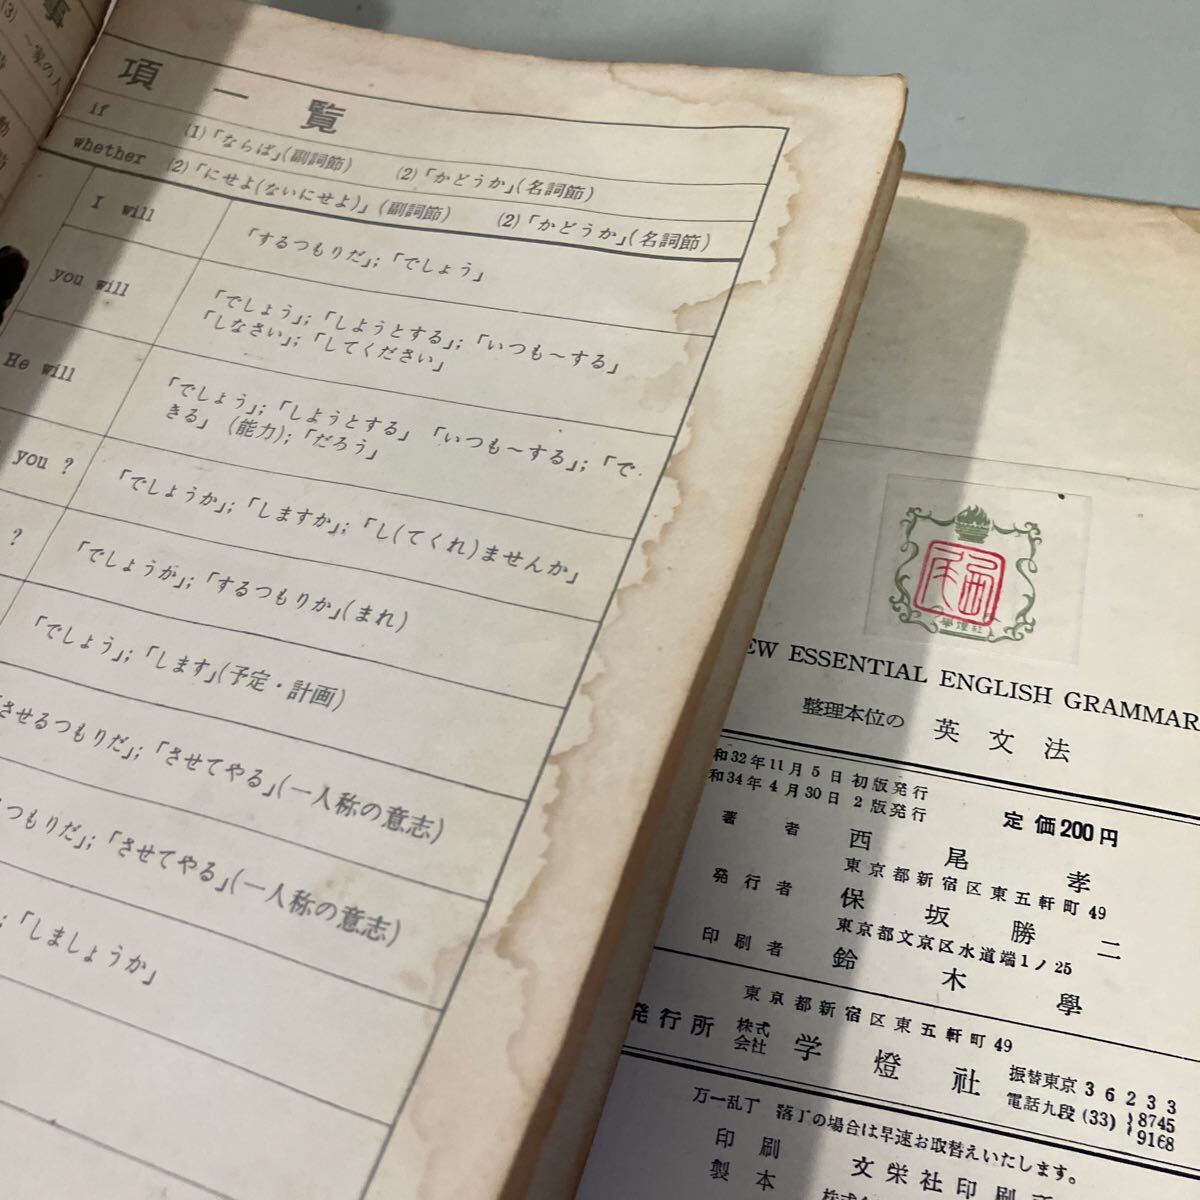 項一覧
if (1)「ならば」(副詞節) (2)「かどうか」(名詞節)
whether (2)「にせよ(ないにせよ)」(副詞節) (2)「かどうか」(名詞節)
I will 「するつもりだ」;「でしょう」
you will 「でしょう」;「しようとする」;「いつも〜する」
「しなさい」;「してください」
He will 「でしょう」;「しようとする」「いつも〜する」;「で
きる」(能力);「だろう」
you ? 「でしょうか」;「しますか」;「し(てくれ)ませんか」
? 「でしょうか」;「するつもりか」(まれ)
「でしょう」;「します」(予定・計画)
させるつもりだ」;「させてやる」(一人称の意志)
つもりだ」;「させてやる」(一人称の意志)
;「しましょうか」
事
(3) 〜家の人
EW ESSENTIAL ENGLISH GRAMMAR
整理本位の 英文法
和32年11月5日 初版発行
和34年4月30日 2版発行
定価200円
著者 西尾孝
東京都新宿区東五軒町49
発行者 保坂勝二
東京都文京区水道端1ノ25
印刷者 鈴木學
東京都新宿区東五軒町49
発行所 株式会社 学燈社
振替東京 36233
電話九段(33) 8745
9168
万一乱丁 落丁の場合は早速お取替えいたします。
印刷 文栄社印刷
製本 株式会社